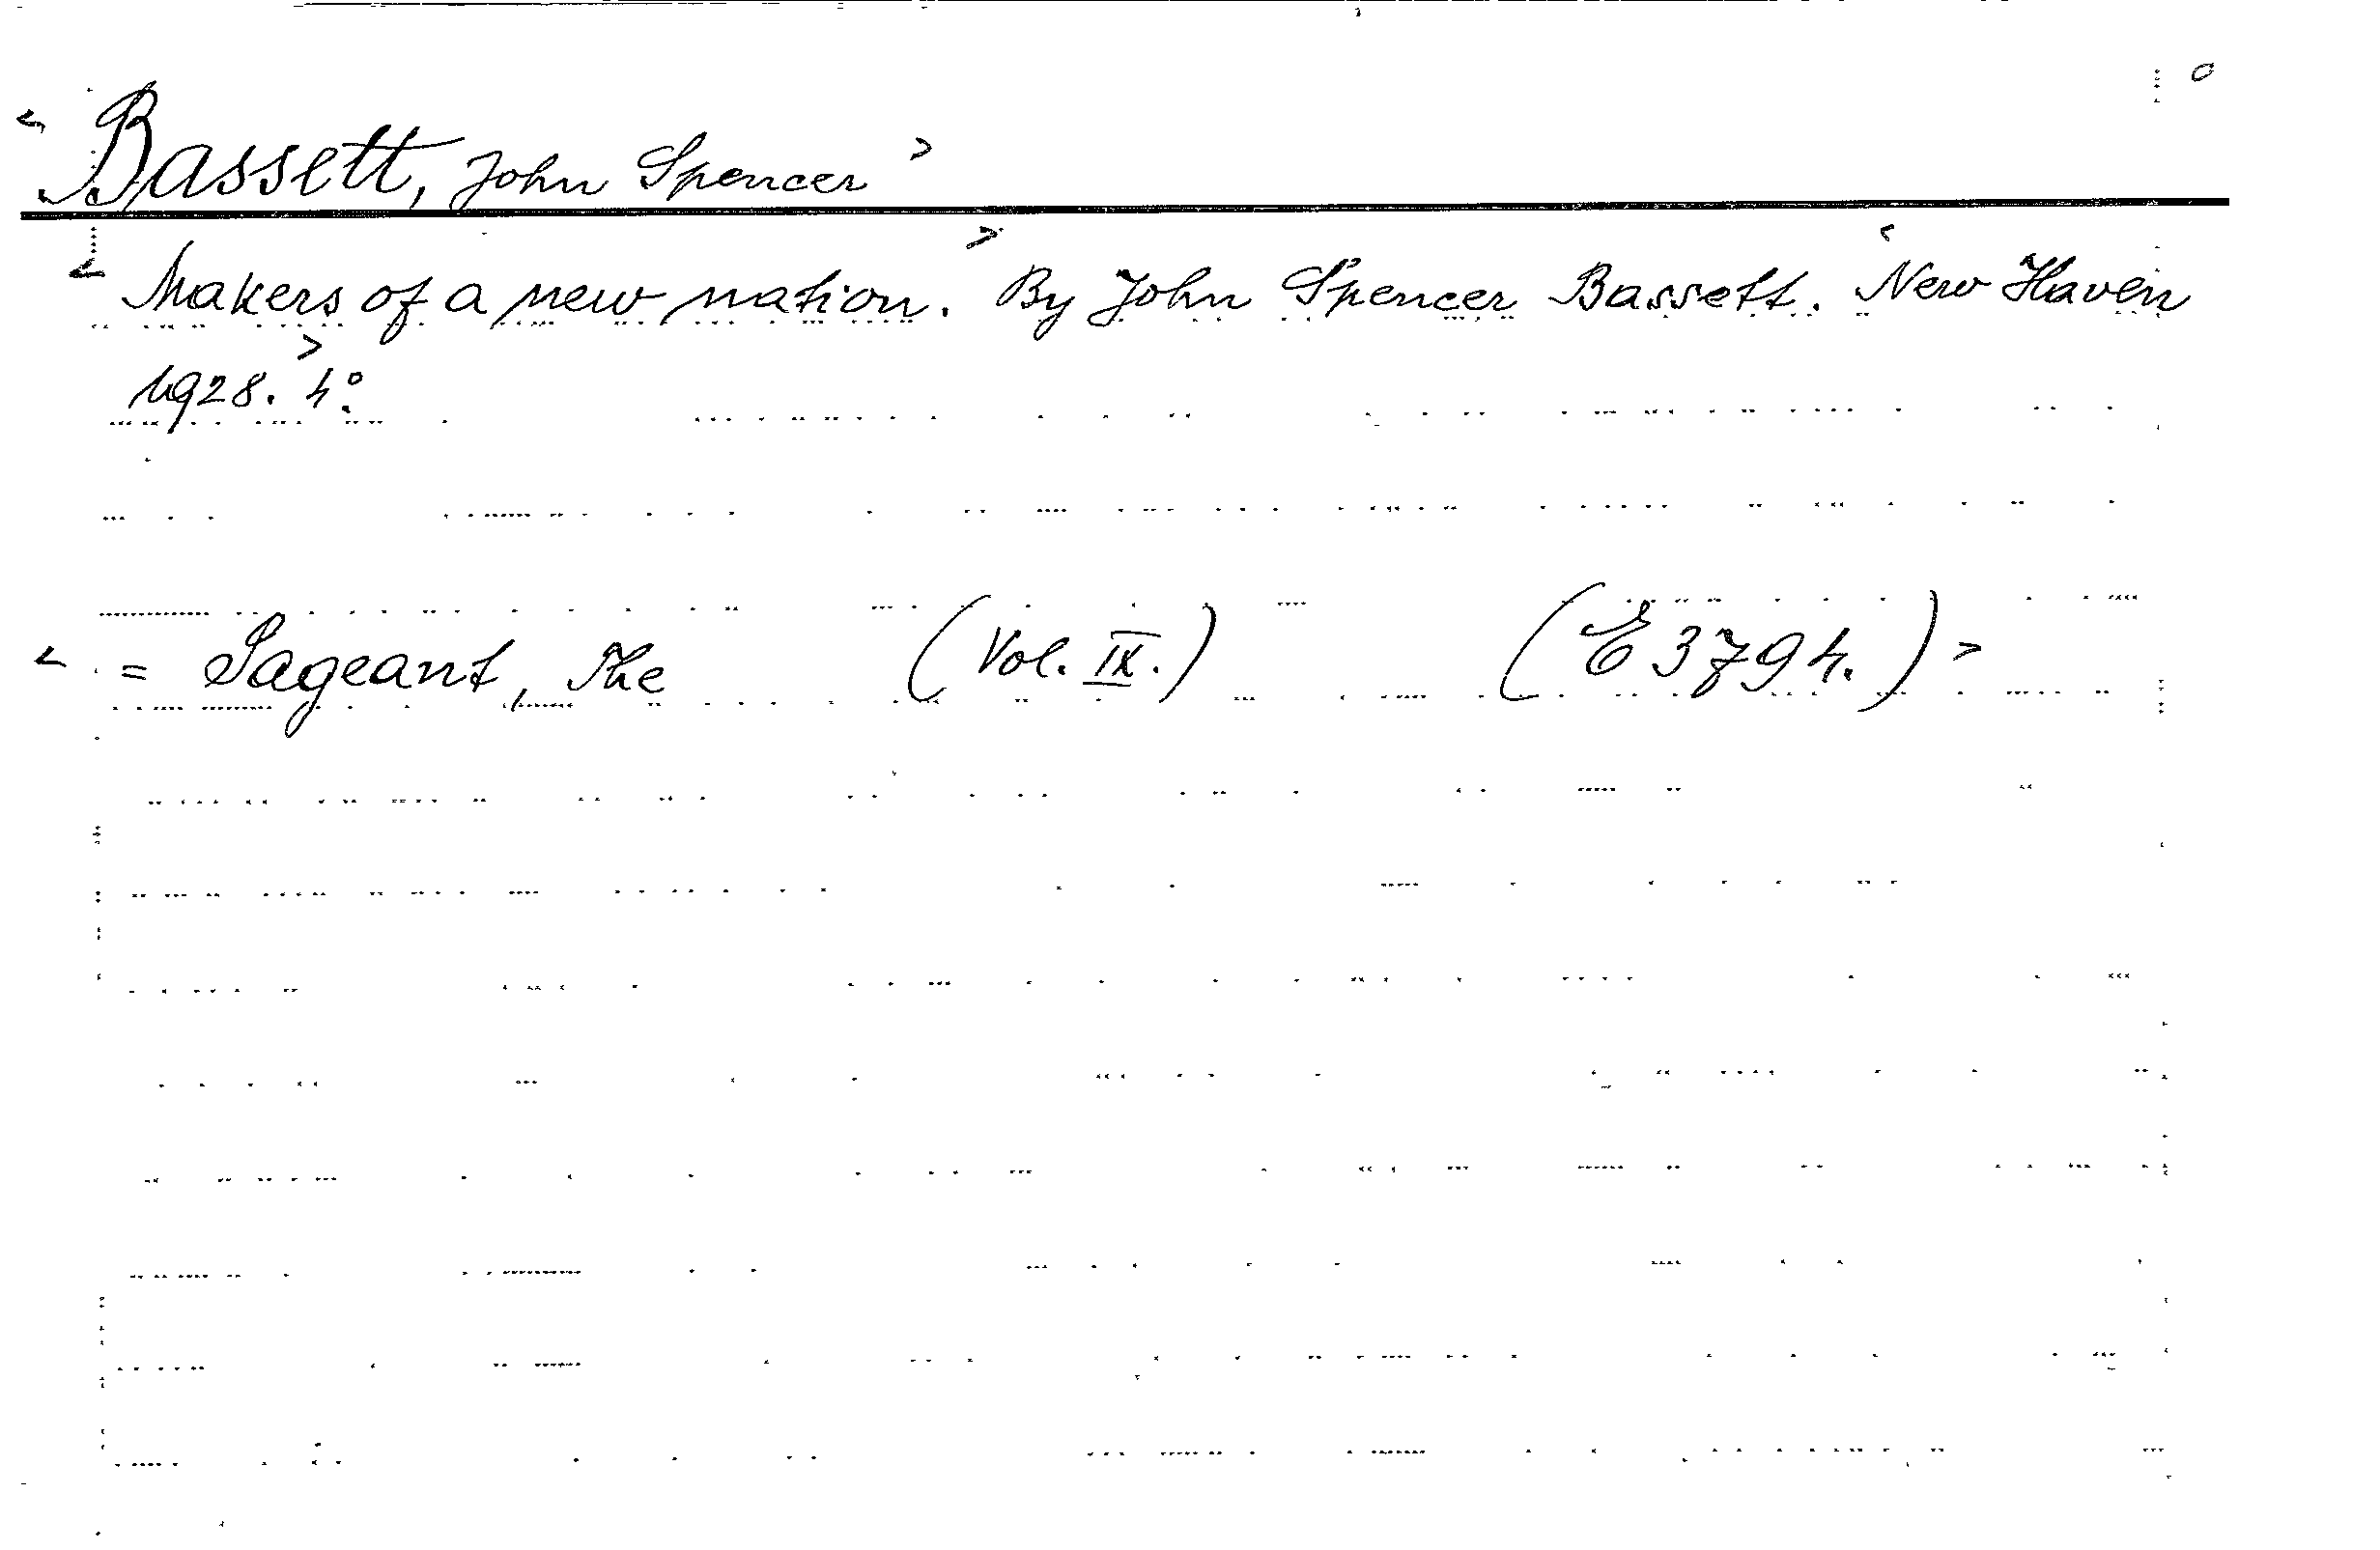 < Bassett, John Spencer >
< Makers of a new nation. > By John Spencer Bassett. < New Haven
1928. > 4°.
< = Pageant, The (Vol. IX.) (E 3794.) >